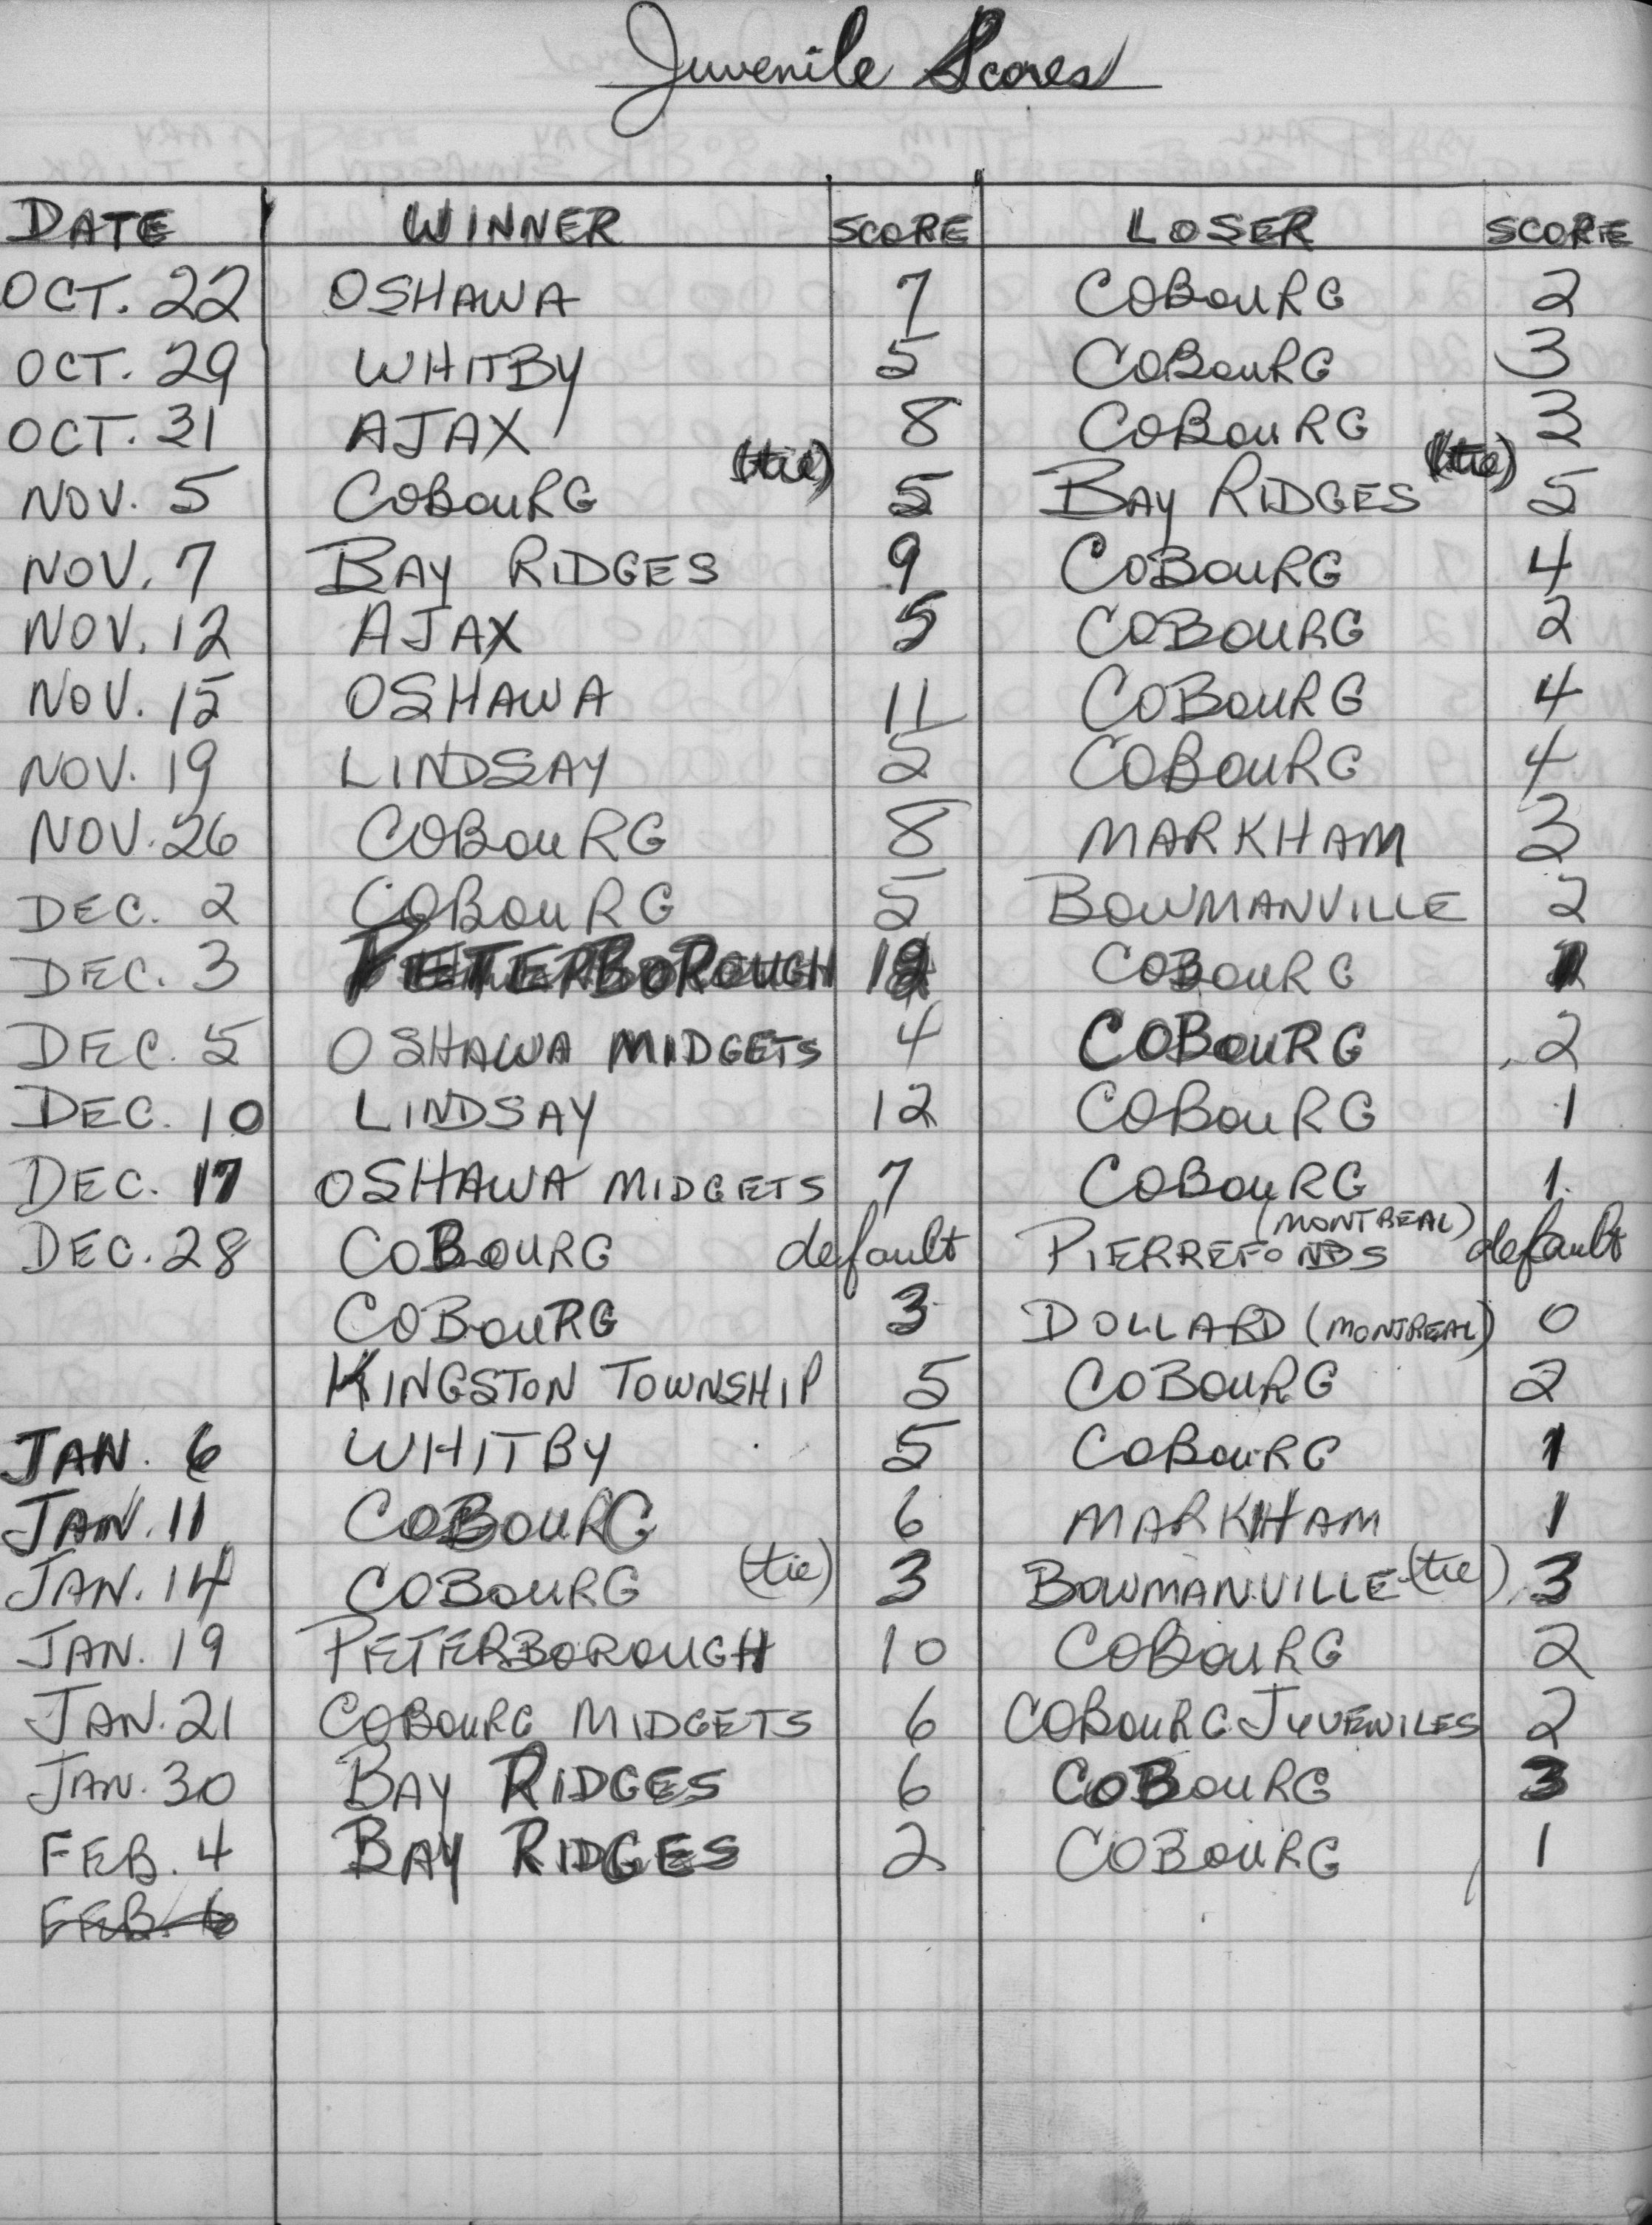 Juvenile Scores
DATE WINNER SCORE LOSER SCORE
OCT. 22 OSHAWA 7 COBOURG 2
OCT. 29 WHITBY 5 COBOURG 3
OCT. 31 AJAX 8 COBOURG 3
NOV. 5 COBOURG (tie) 5 BAY RIDGES (tie) 5
NOV. 7 BAY RIDGES 9 COBOURG 4
NOV. 12 AJAX 5 COBOURG 2
NOV. 15 OSHAWA 11 COBOURG 4
NOV. 19 LINDSAY 5 COBOURG 4
NOV. 26 COBOURG 8 MARKHAM 3
DEC. 2 COBOURG 5 BOWMANVILLE 2
DEC. 3 PETERBOROUGH COBOURG 1
DEC. 5 OSHAWA MIDGETS 4 COBOURG 2
DEC. 10 LINDSAY 12 COBOURG 1
DEC. 17 OSHAWA MIDGETS 7 COBOURG 1
DEC. 28 COBOURG default PIERREFONDS (MONTREAL) default
COBOURG 3 DOLLARD (MONTREAL) 0
KINGSTON TOWNSHIP 5 COBOURG 2
JAN. 6 WHITBY 5 COBOURG 1
JAN. 11 COBOURG 6 MARKHAM 1
JAN. 14 COBOURG (tie) 3 BOWMANVILLE (tie) 3
JAN. 19 PETERBOROUGH 10 COBOURG 2
JAN. 21 COBOURG MIDGETS 6 COBOURG JUVENILES 2
JAN. 30 BAY RIDGES 6 COBOURG 3
FEB. 4 BAY RIDGES 2 COBOURG 1
FEB. 6